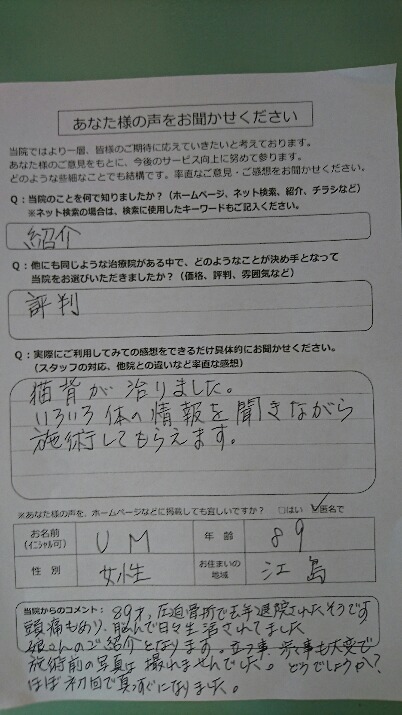 あなた様の声をお聞かせください
当院ではより一層、皆様のご期待に応えていきたいと考えております。
あなた様のご意見をもとに、今後のサービス向上に努めて参ります。
どのような些細なことでも結構です。率直なご意見・ご感想をお聞かせください。
Q：当院のことを何で知りましたか？（ホームページ、ネット検索、紹介、チラシなど）
※ネット検索の場合は、検索に使用したキーワードもご記入ください。
紹介
Q：他にも同じような治療院がある中で、どのようなことが決め手となって
当院をお選びいただきましたか？（価格、評判、雰囲気など）
評判
Q：実際にご利用してみての感想をできるだけ具体的にお聞かせください。
（スタッフの対応、他院との違いなど率直な感想）
猫背が治りました。
いろいろ体の情報を聞きながら
施術してもらえます。
※あなた様の声を、ホームページなどに掲載しても宜しいですか？ □はい ☑匿名で
お名前 UM 年齢 89
（イニシャル可）
性別 女性 お住まいの地域 江島
当院からのコメント：89才、圧迫骨折で去年退院されたそうです
頭痛もあり、悩んで日々生活されてました
娘さんのご紹介となります。立つ事、歩く事も大変で
施術前の写真は撮れませんでした。どうでしょうか？
ほぼ初回で真っすぐになりました。